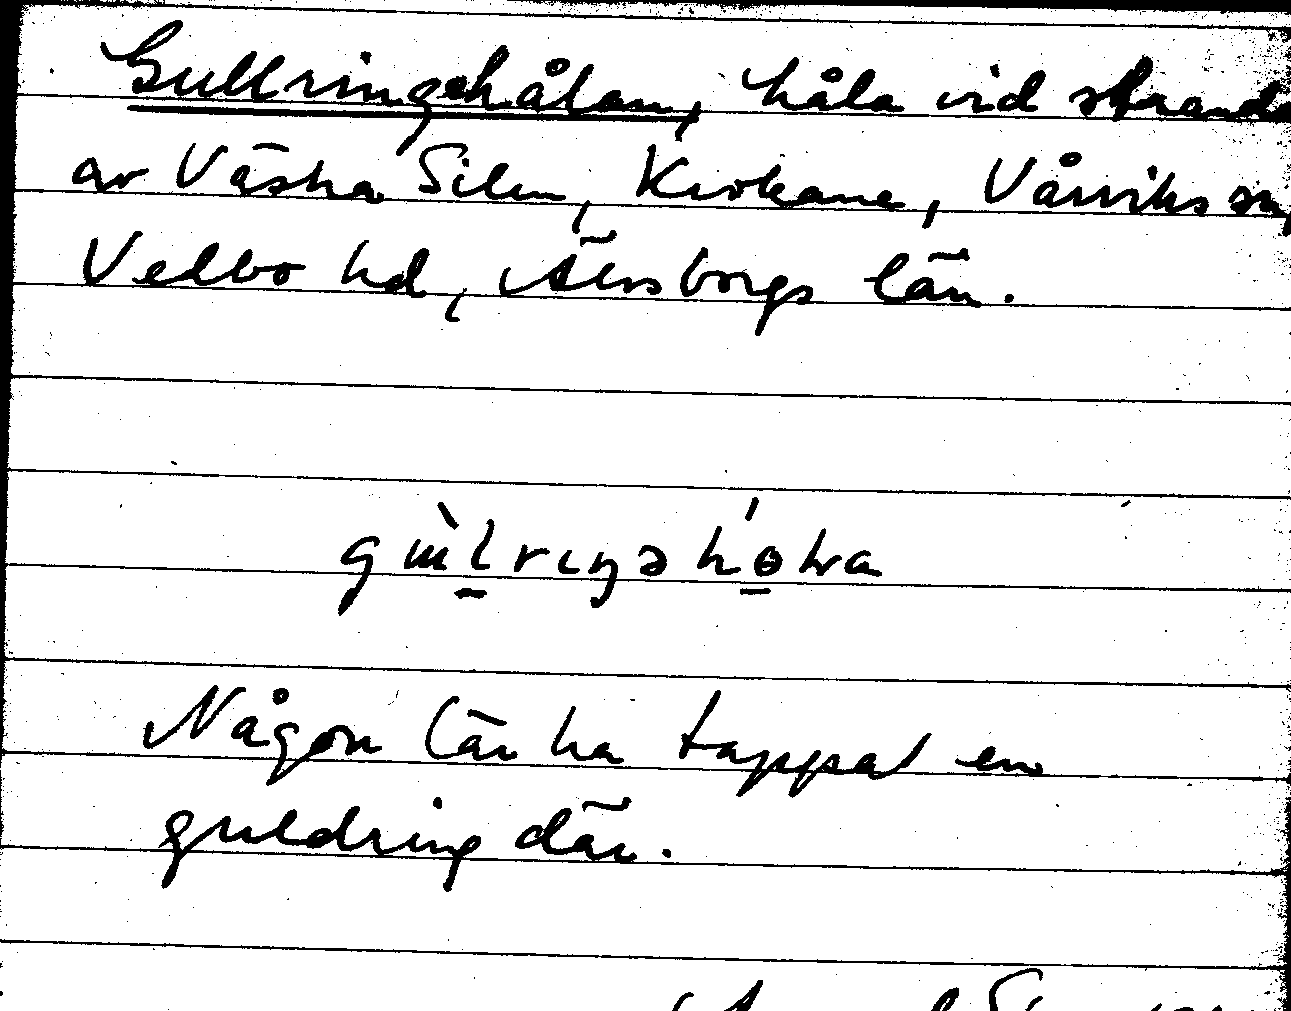 Gullringehålan, håla vid strande
av Västra Silen, Krokane, Vårviks sn,
Vedbo hd, Älvsborgs län.
Någon lär ha tappat en
guldring där.